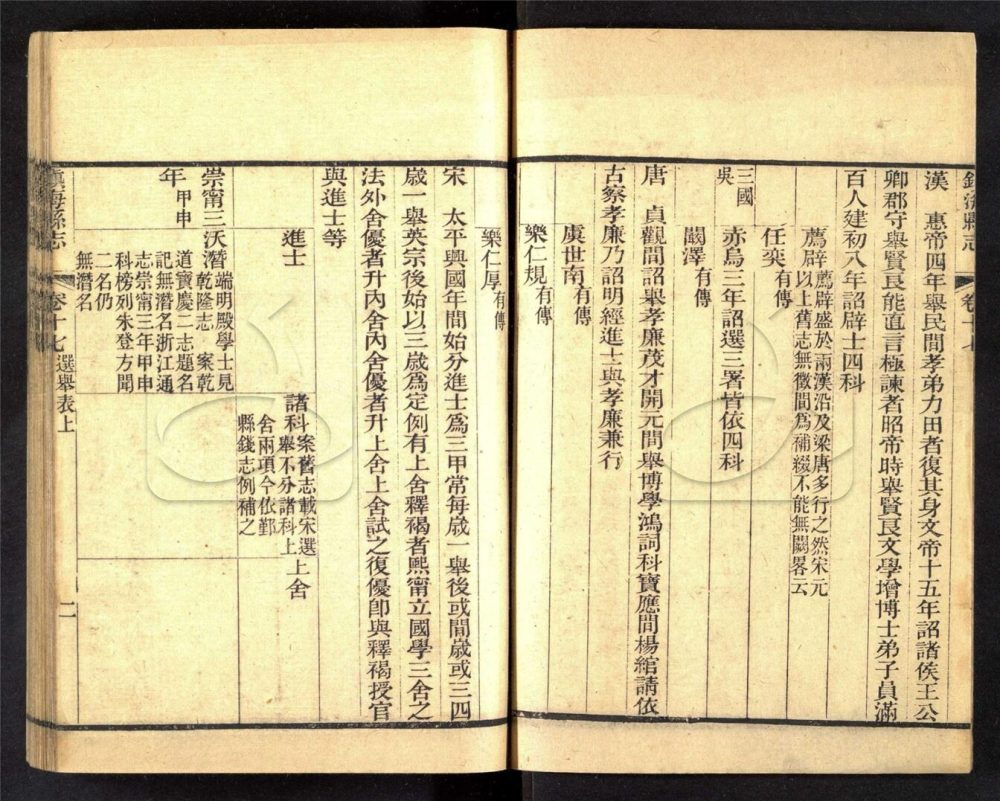 鎮海縣志
卷十七
漢　惠帝四年舉民間孝弟力田者復其身文帝十五年詔諸侯王公
卿郡守舉賢良能直言極諫者昭帝時舉賢良文學增博士弟子員滿
百人建初八年詔辟士四科
薦辟
薦辟盛於兩漢沿及梁唐多行之然宋元
以上舊志無徵間為補綴不能無闕畧云
任奕有傳
三國
吳
赤烏三年詔選三署皆依四科
闞澤有傳
唐　貞觀間詔舉孝廉茂才開元間舉博學鴻詞科寶應間楊綰請依
古察孝廉乃詔明經進士與孝廉兼行
虞世南有傳
樂仁規有傳
樂仁厚有傳
宋　太平興國年間始分進士為三甲常每歲一舉後或間歲或三四
歲一舉英宗後始以三歲為定例有上舍釋褐者熙甯立國學三舍之
法外舍優者升內舍內舍優者升上舍上舍試之復優卽與釋褐授官
與進士等
進士
諸科
案舊志載宋選
舉不分諸科上
舍兩項今依鄞
縣錢志例補之
上舍
崇甯三
年甲申
沃潛
端明殿學士見
乾隆志　案乾
道寶慶二志題名
記無潛名浙江通
志崇甯三年甲申
科榜列朱登方聞
二名仍
無潛名
鎮海縣志
卷十七　選舉表上
二